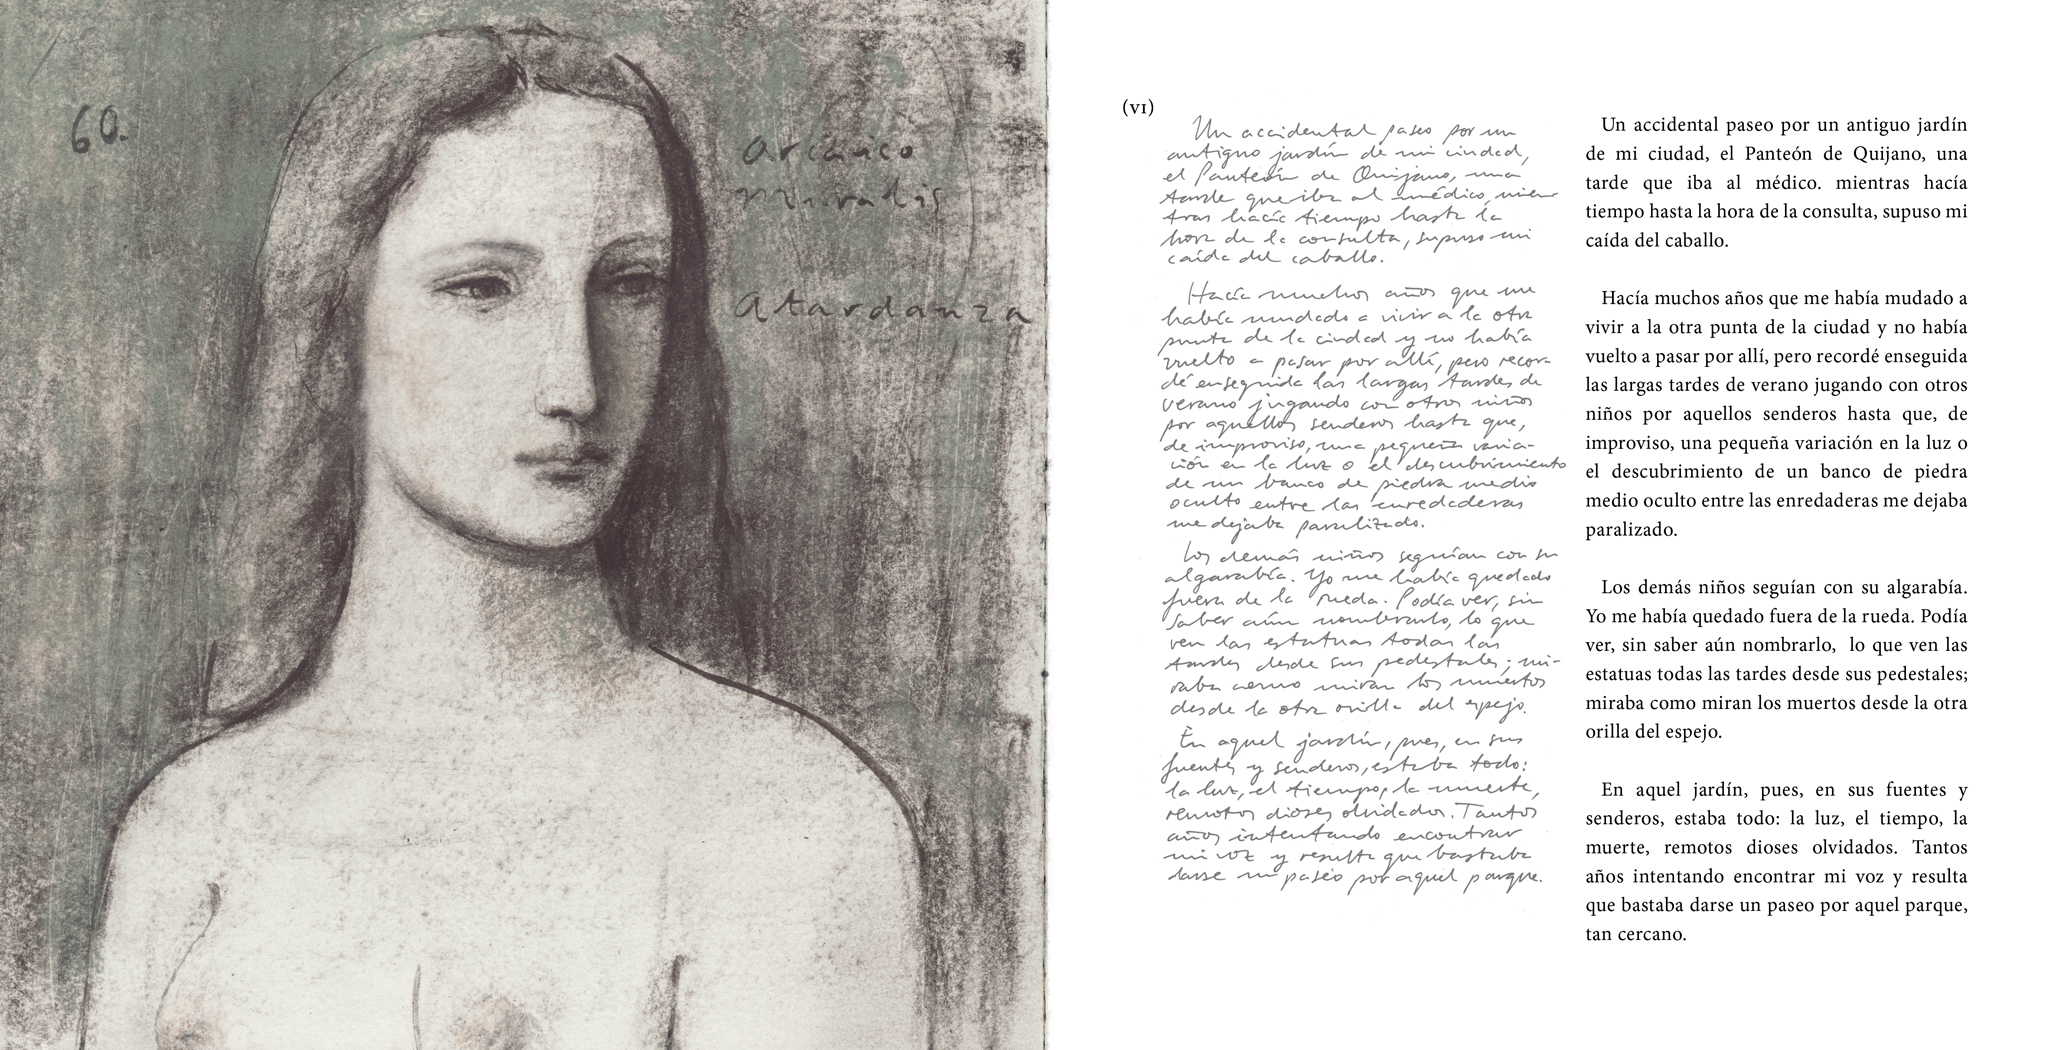 60.
arcaico
Atardanza
(VI)
Un accidental paseo por un
antiguo jardín de mi ciudad,
el Panteón de Quijano, una
tarde que iba al médico, mien
tras hacía tiempo hasta la
hora de la consulta, supuso mi
caída del caballo.
Hacía muchos años que me
había mudado a vivir a la otra
punta de la ciudad y no había
vuelto a pasar por allí, pero recor-
dé enseguida las largas tardes de
verano jugando con otros niños
por aquellos senderos hasta que,
de improviso, una pequeña varia-
ción en la luz o el descubrimiento
de un banco de piedra medio
oculto entre las enredaderas
me dejaba paralizado.
Los demás niños seguían con su
algarabía. Yo me había quedado
fuera de la rueda. Podía ver, sin
saber aún nombrarlo, lo que
ven las estatuas todas las
tardes desde sus pedestales; mi-
raba como miran los muertos
desde la otra orilla del espejo.
En aquel jardín, pues, en sus
fuentes y senderos, estaba todo:
la luz, el tiempo, la muerte,
remotos dioses olvidados. Tantos
años intentando encontrar
mi voz y resulta que bastaba
darse un paseo por aquel parque.
Un accidental paseo por un antiguo jardín
de mi ciudad, el Panteón de Quijano, una
tarde que iba al médico. mientras hacía
tiempo hasta la hora de la consulta, supuso mi
caída del caballo.
Hacía muchos años que me había mudado a
vivir a la otra punta de la ciudad y no había
vuelto a pasar por allí, pero recordé enseguida
las largas tardes de verano jugando con otros
niños por aquellos senderos hasta que, de
improviso, una pequeña variación en la luz o
el descubrimiento de un banco de piedra
medio oculto entre las enredaderas me dejaba
paralizado.
Los demás niños seguían con su algarabía.
Yo me había quedado fuera de la rueda. Podía
ver, sin saber aún nombrarlo, lo que ven las
estatuas todas las tardes desde sus pedestales;
miraba como miran los muertos desde la otra
orilla del espejo.
En aquel jardín, pues, en sus fuentes y
senderos, estaba todo: la luz, el tiempo, la
muerte, remotos dioses olvidados. Tantos
años intentando encontrar mi voz y resulta
que bastaba darse un paseo por aquel parque,
tan cercano.